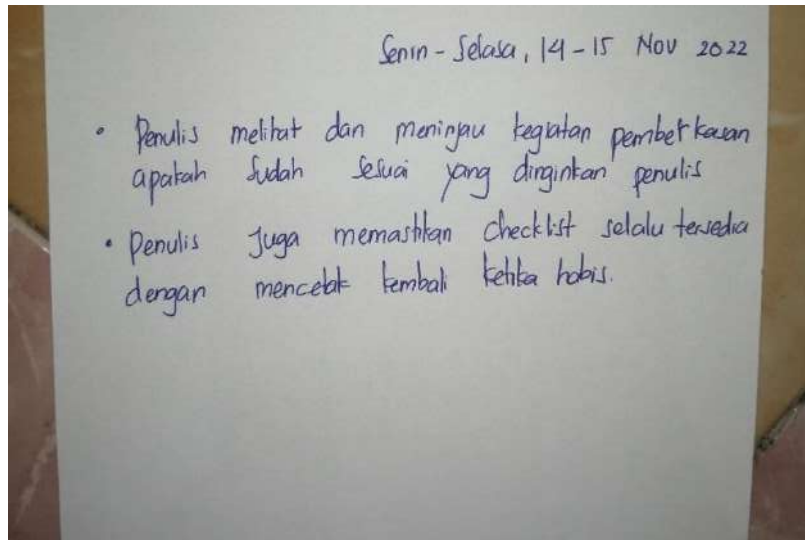 Senin - Selasa, 14 - 15 Nov 2022
• Penulis melihat dan meninjau kegiatan pemberkasan
apakah sudah sesuai yang diinginkan penulis
• Penulis juga memastikan checklist selalu tersedia
dengan mencetak kembali ketika habis.